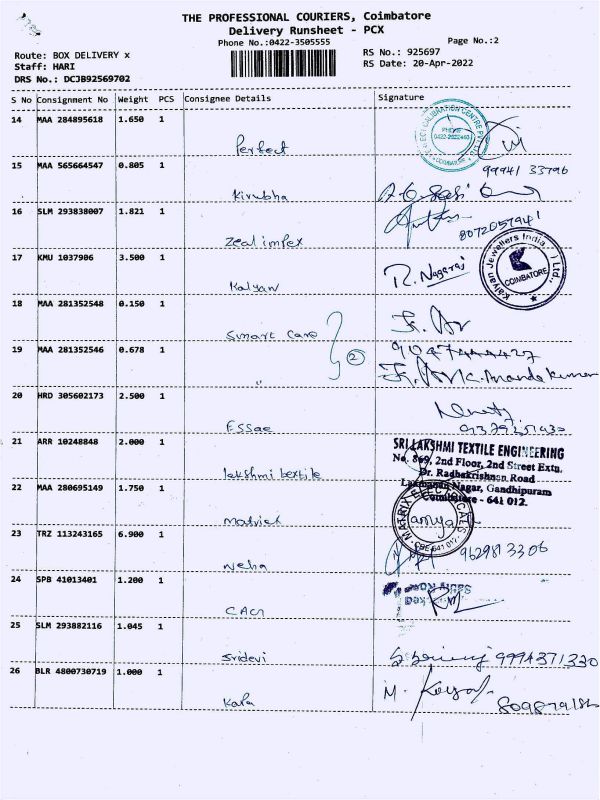 THE PROFESSIONAL COURIERS, Coimbatore
Delivery Runsheet - PCX
Phone No.:0422-3505555
Page No.:2
Route: BOX DELIVERY x
RS No.: 925697
Staff: HARI
RS Date: 20-Apr-2022
DRS No.: DCJB92569702
S No Consignment No Weight PCS Consignee Details Signature
14 MAA 284895618 1.650 1
Perfect
15 MAA 565664547 0.805 1
99941 33796
Kirubha
16 SLM 293838007 1.821 1
8072057941
Zeal impex
17 KMU 1037906 3.500 1
R. Nagaraj
Kalyan Jewellers India
COIMBATORE
Kalyan
18 MAA 281352548 0.150 1
Smart Care
2
19 MAA 281352546 0.678 1
"
20 HRD 305602173 2.500 1
Essae
21 ARR 10248848 2.000 1
SRI LAKSHMI TEXTILE ENGINEERING
No. 869, 2nd Floor, 2nd Street Extn.
Dr. Radhakrishnan Road
Nagar, Gandhipuram
Coimbatore - 641 012.
lakshmi textile
22 MAA 280695149 1.750 1
MATRIX ELECTRICALS
CBE-641 012
Matrick
23 TRZ 113243165 6.900 1
9629813306
Neha
24 SPB 41013401 1.200 1
25 SLM 293882116 1.045 1
Sridevi
9994371330
26 BLR 4800730719 1.000 1
M.
Kara